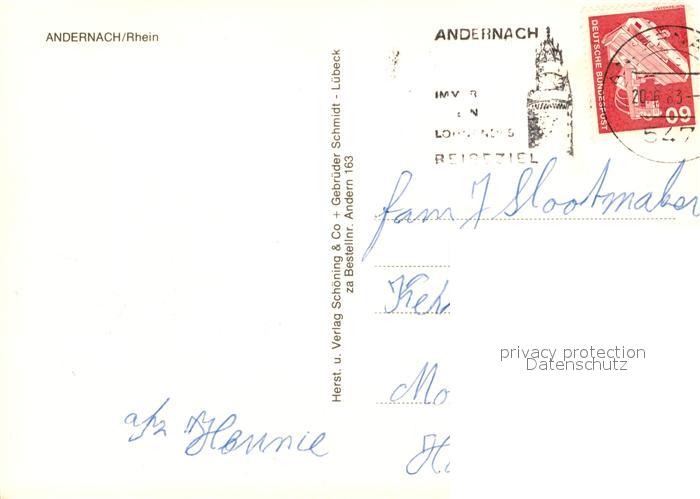 ANDERNACH/Rhein
Herst. u. Verlag Schöning & Co + Gebrüder Schmidt - Lübeck
za Bestellnr. Andern 163
ANDERNACH
REISEZIEL
DEUTSCHE BUNDESPOST
60
20.6.83
547
fam J Slootmaker
Keh
Mo
privacy protection
Datenschutz
afz Hannie